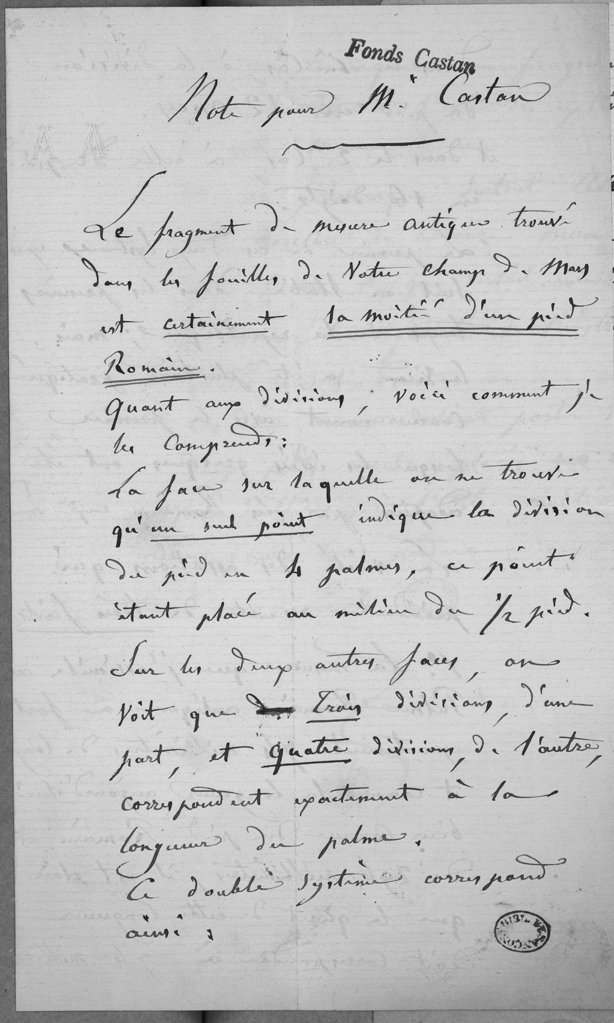 Fonds Castan
Note pour Mr Castan
Le fragment de mesure antique trouvé
dans les fouilles de votre champ de Mars
est certainement la moitié d'un pied
Romain.
Quant aux divisions, voici comment je
les comprends :
La face sur laquelle on ne trouve
qu'un seul point indique la division
du pied en 4 palmes, ce point
étant placé au milieu du 1/2 pied.
Sur les deux autres faces, on
voit que trois divisions, d'une
part, et quatre divisions, de l'autre,
correspondent exactement à la
longueur du palme.
Ce double système correspond
ainsi :